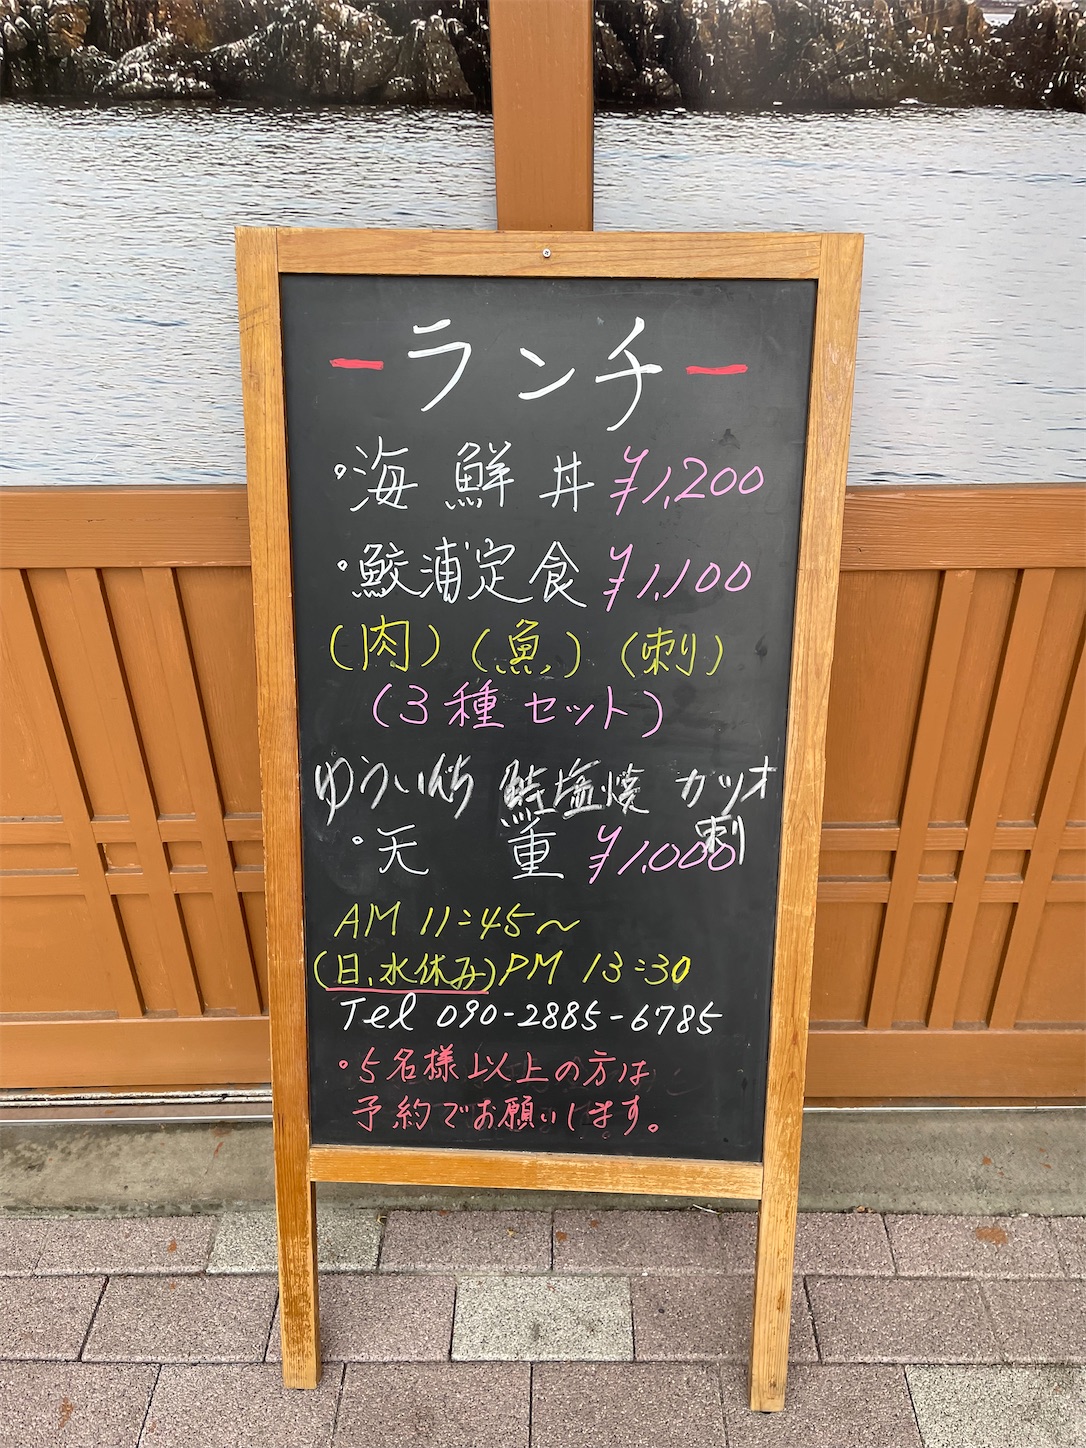 ーランチー
・海鮮丼 ¥1,200
・鮫浦定食 ¥1,100
(肉) (魚) (刺)
(3種セット)
鮭塩焼 カツオ
刺
・天 重 ¥1,000
AM 11:45〜
(日、水休み)PM 13:30
Tel 090-2885-6785
・5名様以上の方は
予約でお願いします。